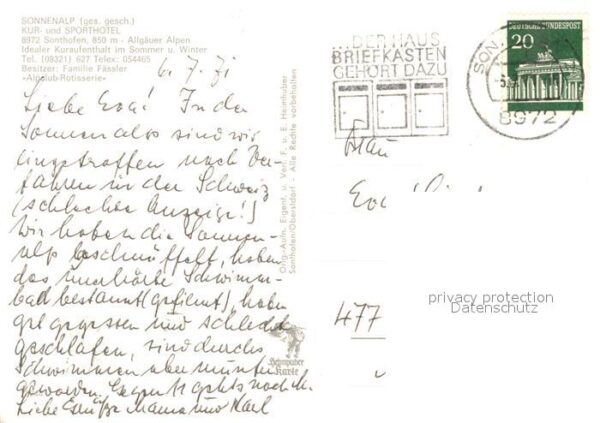 SONNENALP (ges. gesch.)
KUR- und SPORTHOTEL
8972 Sonthofen, 850 m - Allgäuer Alpen
Idealer Kuraufenthalt im Sommer u. Winter
Tel. (08321) 627 Telex: 054465
Besitzer: Familie Fässler
»Alpclub-Rotisserie«
6. 7. 71
Liebe Eva! In der
Sonnenalp sind wir
eingetroffen nach
fahren in der Schweiz
(schlechte Anzeige!)
Wir haben die Sonnen-
alp beschnüffelt, haben
das unerhörte Schwimm-
bad bestaunt (gefilmt), haben
gut gegessen und schlecht
geschlafen, sind durchs
Schwimmen aber munter
geworden. gehts nach
Liebe Grüße Mama und Karl
Orig.-Aufn. Eigent. u. Verl. F. u. E. Heimhuber
Sonthofen/Oberstdorf - Alle Rechte vorbehalten
Schöning
Karte
... DER HAUS
BRIEFKASTEN
GEHÖRT DAZU
DEUTSCHE BUNDESPOST
20
SON
8972
Frau
Eva
477
privacy protection
Datenschutz